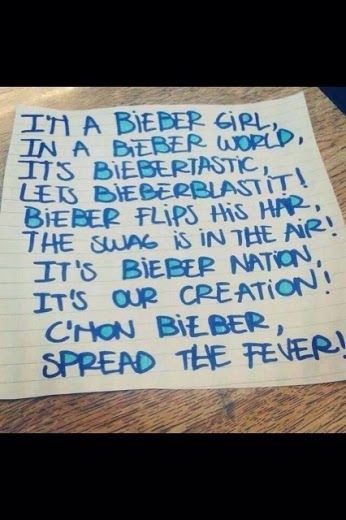 I'M A BIEBER GIRL,
IN A BIEBER WORLD,
IT'S BIEBERTASTIC,
LETS BIEBERBLAST IT!
BIEBER FLIPS HIS HAIR,
THE SWAG IS IN THE AIR!
IT'S BIEBER NATION,
IT'S OUR CREATION!
C'MON BIEBER,
SPREAD THE FEVER!